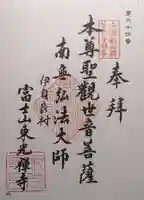 第六十四番
奉拝
本尊聖観世音菩薩
南無弘法大師
伊自良村
富士山東光禅寺